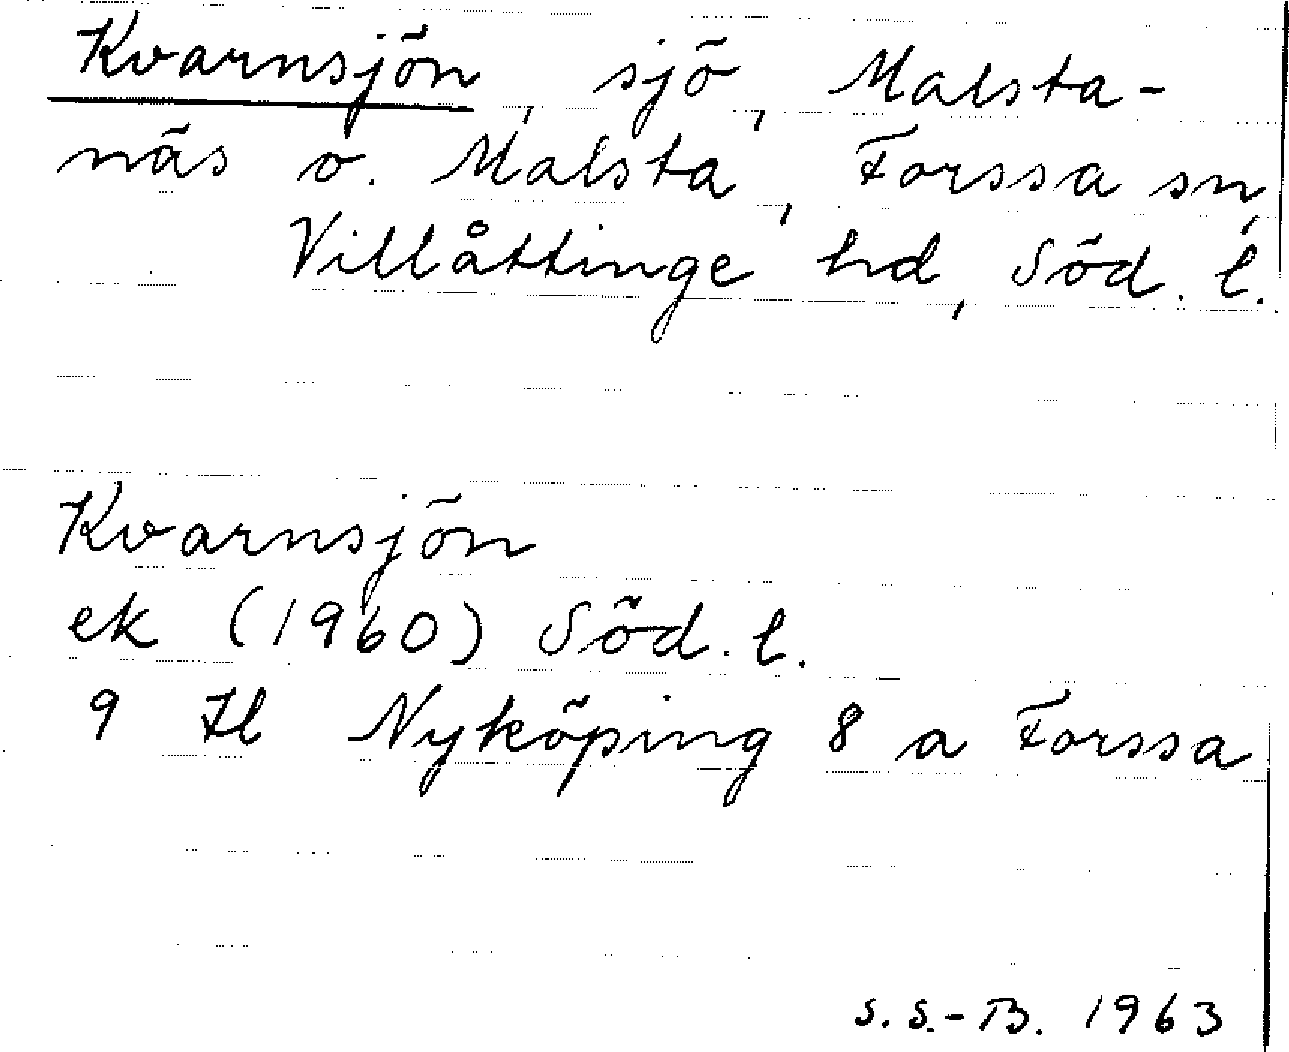 Kvarnsjön, sjö, Malsta-
näs o. Malsta, Forssa sn,
Villåttinge hd, Söd. l.
Kvarnsjön
ek (1960) Söd. l.
9 H Nyköping 8 a Forssa
S. S.-B. 1963